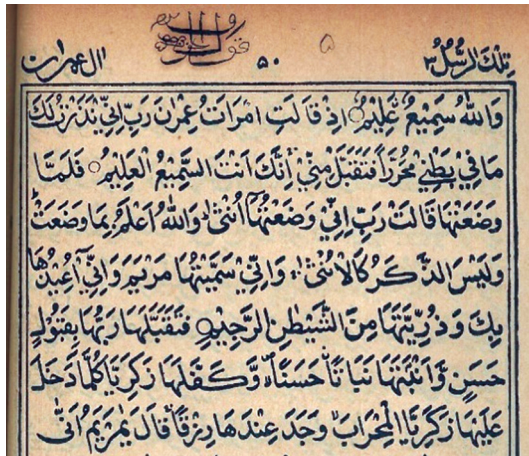 تِلْكَ الرُّسُلُ ٣ ٥٠ اٰل عمرٰن
وَاللّٰهُ سَمِيْعٌ عَلِيْمٌ ○ اِذْ قَالَتِ امْرَاَتُ عِمْرٰنَ رَبِّ اِنِّيْ نَذَرْتُ لَكَ
مَا فِيْ بَطْنِيْ مُحَرَّرًا فَتَقَبَّلْ مِنِّيْ اِنَّكَ اَنْتَ السَّمِيْعُ الْعَلِيْمُ ○ فَلَمَّا
وَضَعَتْهَا قَالَتْ رَبِّ اِنِّيْ وَضَعْتُهَآ اُنْثٰى ؕ وَاللّٰهُ اَعْلَمُ بِمَا وَضَعَتْ ؕ
وَلَيْسَ الذَّكَرُ كَالْاُنْثٰى ۚ وَاِنِّيْ سَمَّيْتُهَا مَرْيَمَ وَاِنِّيْٓ اُعِيْذُهَا
بِكَ وَذُرِّيَّتَهَا مِنَ الشَّيْطٰنِ الرَّجِيْمِ ○ فَتَقَبَّلَهَا رَبُّهَا بِقَبُوْلٍ
حَسَنٍ وَّاَنْۢبَتَهَا نَبَاتًا حَسَنًا ۙ وَّكَفَّلَهَا زَكَرِيَّا ؕ كُلَّمَا دَخَلَ
عَلَيْهَا زَكَرِيَّا الْمِحْرَابَ ۙ وَجَدَ عِنْدَهَا رِزْقًا ۚ قَالَ يٰمَرْيَمُ اَنّٰى